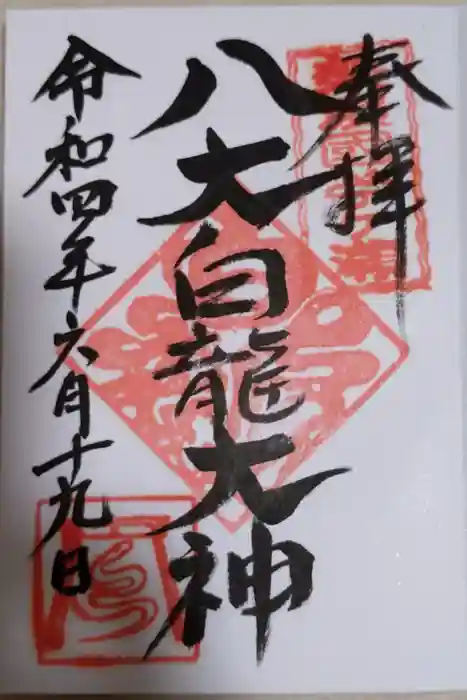 奉拝
八大白龍大神
令和四年六月十九日